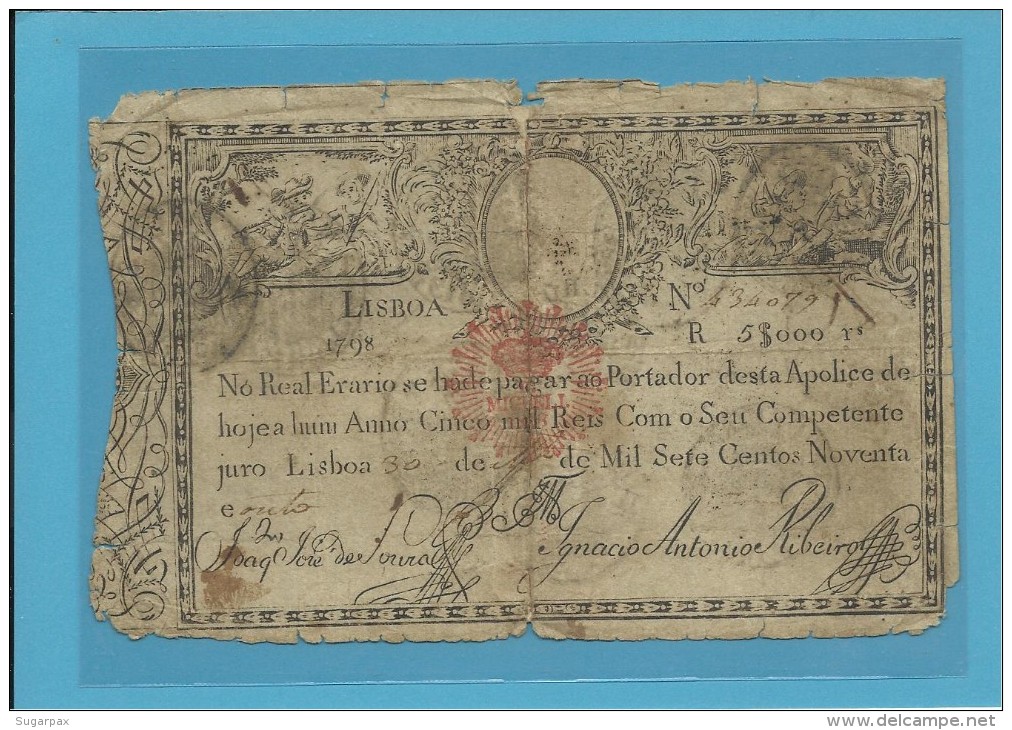 LISBOA
1798
Nº 434079
R 5$000 rs
No Real Erario se hade pagar ao Portador desta Apolice de
hoje a hum Anno Cinco mil Reis Com o Seu Competente
juro Lisboa 30 de de Mil Sete Centos Noventa
e outo
Joaqm José de Souza
Ignacio Antonio Ribeiro
Sugarpax
www.delcampe.net